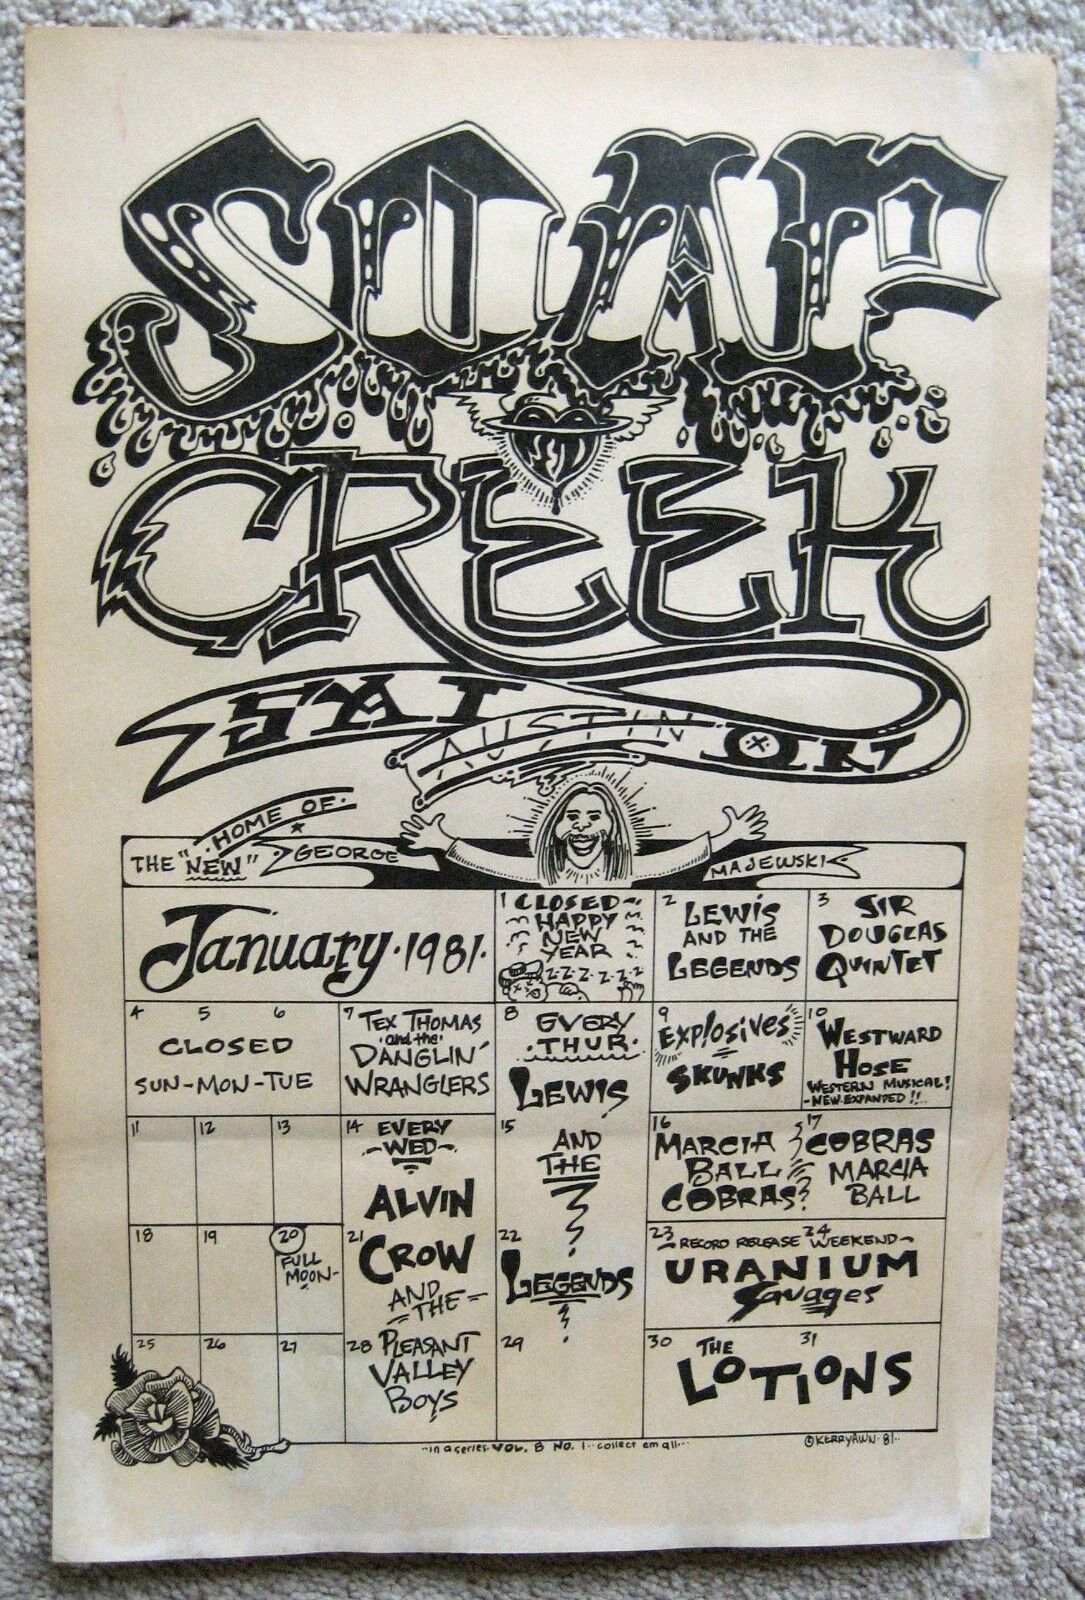 SOAP
CREEK
SAL
AUSTIN
OON
THE "NEW" HOME OF
GEORGE
MAJEWSKI
January · 1981 ·
1 CLOSED
HAPPY
NEW
YEAR
Z-Z-Z-Z-Z-Z-Z
2 LEWIS
AND THE
LEGENDS
3 SIR
DOUGLAS
QUINTET
4 5 6
CLOSED
SUN-MON-TUE
7 TEX THOMAS
and the
DANGLIN'
WRANGLERS
8 EVERY
THUR.
LEWIS
9 EXPLOSIVES
SKUNKS
10 WESTWARD
HOSE
WESTERN MUSICAL!
-NEW-EXPANDED!!
11 12 13
14 EVERY
-WED-
ALVIN
15 AND
THE
16 MARCIA
BALL
COBRAS?
17 COBRAS
MARCIA
BALL
18 19 20
FULL
MOON-
21 CROW
AND
THE-
22
LEGENDS
23 24
RECORD RELEASE WEEKEND
URANIUM
Savages
25 26 27
28 PLEASANT
VALLEY
BOYS
29
30 31
THE
LOTIONS
--in a series. VOL. 8 NO. 1.. collect em all...
©KERRY AWN · 81..